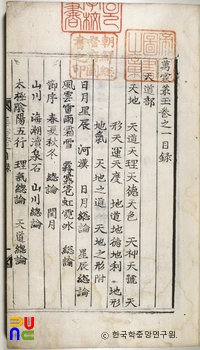 萬家叢玉卷之一目錄
天道部
天地 天道天理天德天色 天神天號天
形天運天度 地道地德地利地形
地氣 天地之道 天地之形附
日月星辰 河漢 日月總論 星辰總論
風雲雷雨霜雪 霧露雹虹霓氷 總論
節序 春夏秋冬 總論 閏月
山川 海潮瀆泉石 山川總論
太極陰陽五行 理氣總論 天道總論
ⓒ 한국학중앙연구원